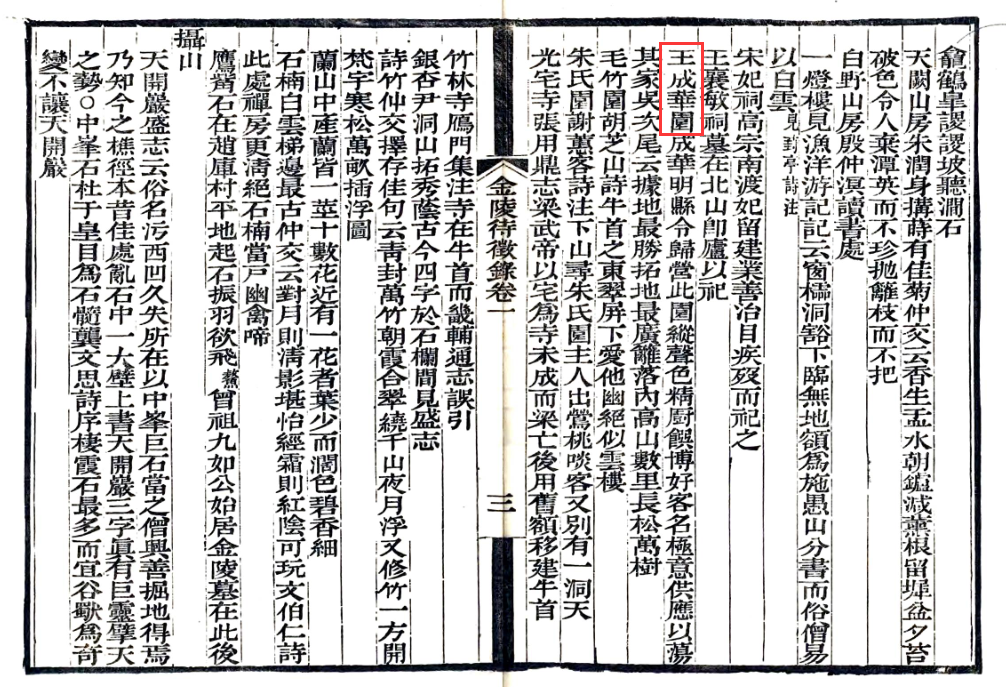 龕鶴皐謖謖坡聽澗石
天闕山房朱潤身搆蒔有佳菊仲交云香生盂水朝鐙減薰根留墀盆夕苔
破色令人棄潭英而不珍拋籬枝而不把
白野山房殷仲溟讀書處
一燈樓見漁洋游記記云窗櫺洞豁下臨無地額爲施愚山分書而俗僧易
以白雲見野亭詩注
宋妃祠高宗南渡妃留建業善治目疾歿而祀之
王襄敏祠墓在北山卽廬以祀
王成華園成華明縣令歸營此園縱聲色精廚饌博好客名極意供應以蕩
其家吳次尾云據地最勝拓地最廣籬落內高山數里長松萬樹
毛竹園胡芝山詩牛首之東翠屏下愛他幽絕似雲樓
朱氏園謝蕙客詩注下山尋朱氏園主人出鶯桃啖客又別有一洞天
光宅寺張用鼎志梁武帝以宅爲寺未成而梁亡後用舊額移建牛首
金陵待徵錄卷一
三
竹林寺鴈門集注寺在牛首而畿輔通志誤引
銀杏尹洞山拓秀蔭古今四字於石欄間見盛志
詩竹仲交擇存佳句云靑封萬竹朝霞合翠繞千山夜月浮又修竹一方開
梵宇寒松萬畝插浮圖
蘭山中產蘭皆一莖十數花近有一花者葉少而濶色碧香細
石楠白雲梯邊最古仲交云對月則淸影堪怡經霜則紅陰可玩文伯仁詩
此處禪房更淸絕石楠當戸幽禽啼
鷹窩石在趙庫村平地起石振羽欲飛鰲曾祖九如公始居金陵墓在此後
攝山
天開巖盛志云俗名污西凹久失所在以中峯巨石當之僧興善掘地得焉
乃知今之樵徑本昔佳處亂石中一大壁上書天開巖三字眞有巨靈擘天
之勢○中峯石杜于皇目爲石髓龔文思詩序棲霞石最多而宜谷獸爲奇
變不讓天開巖